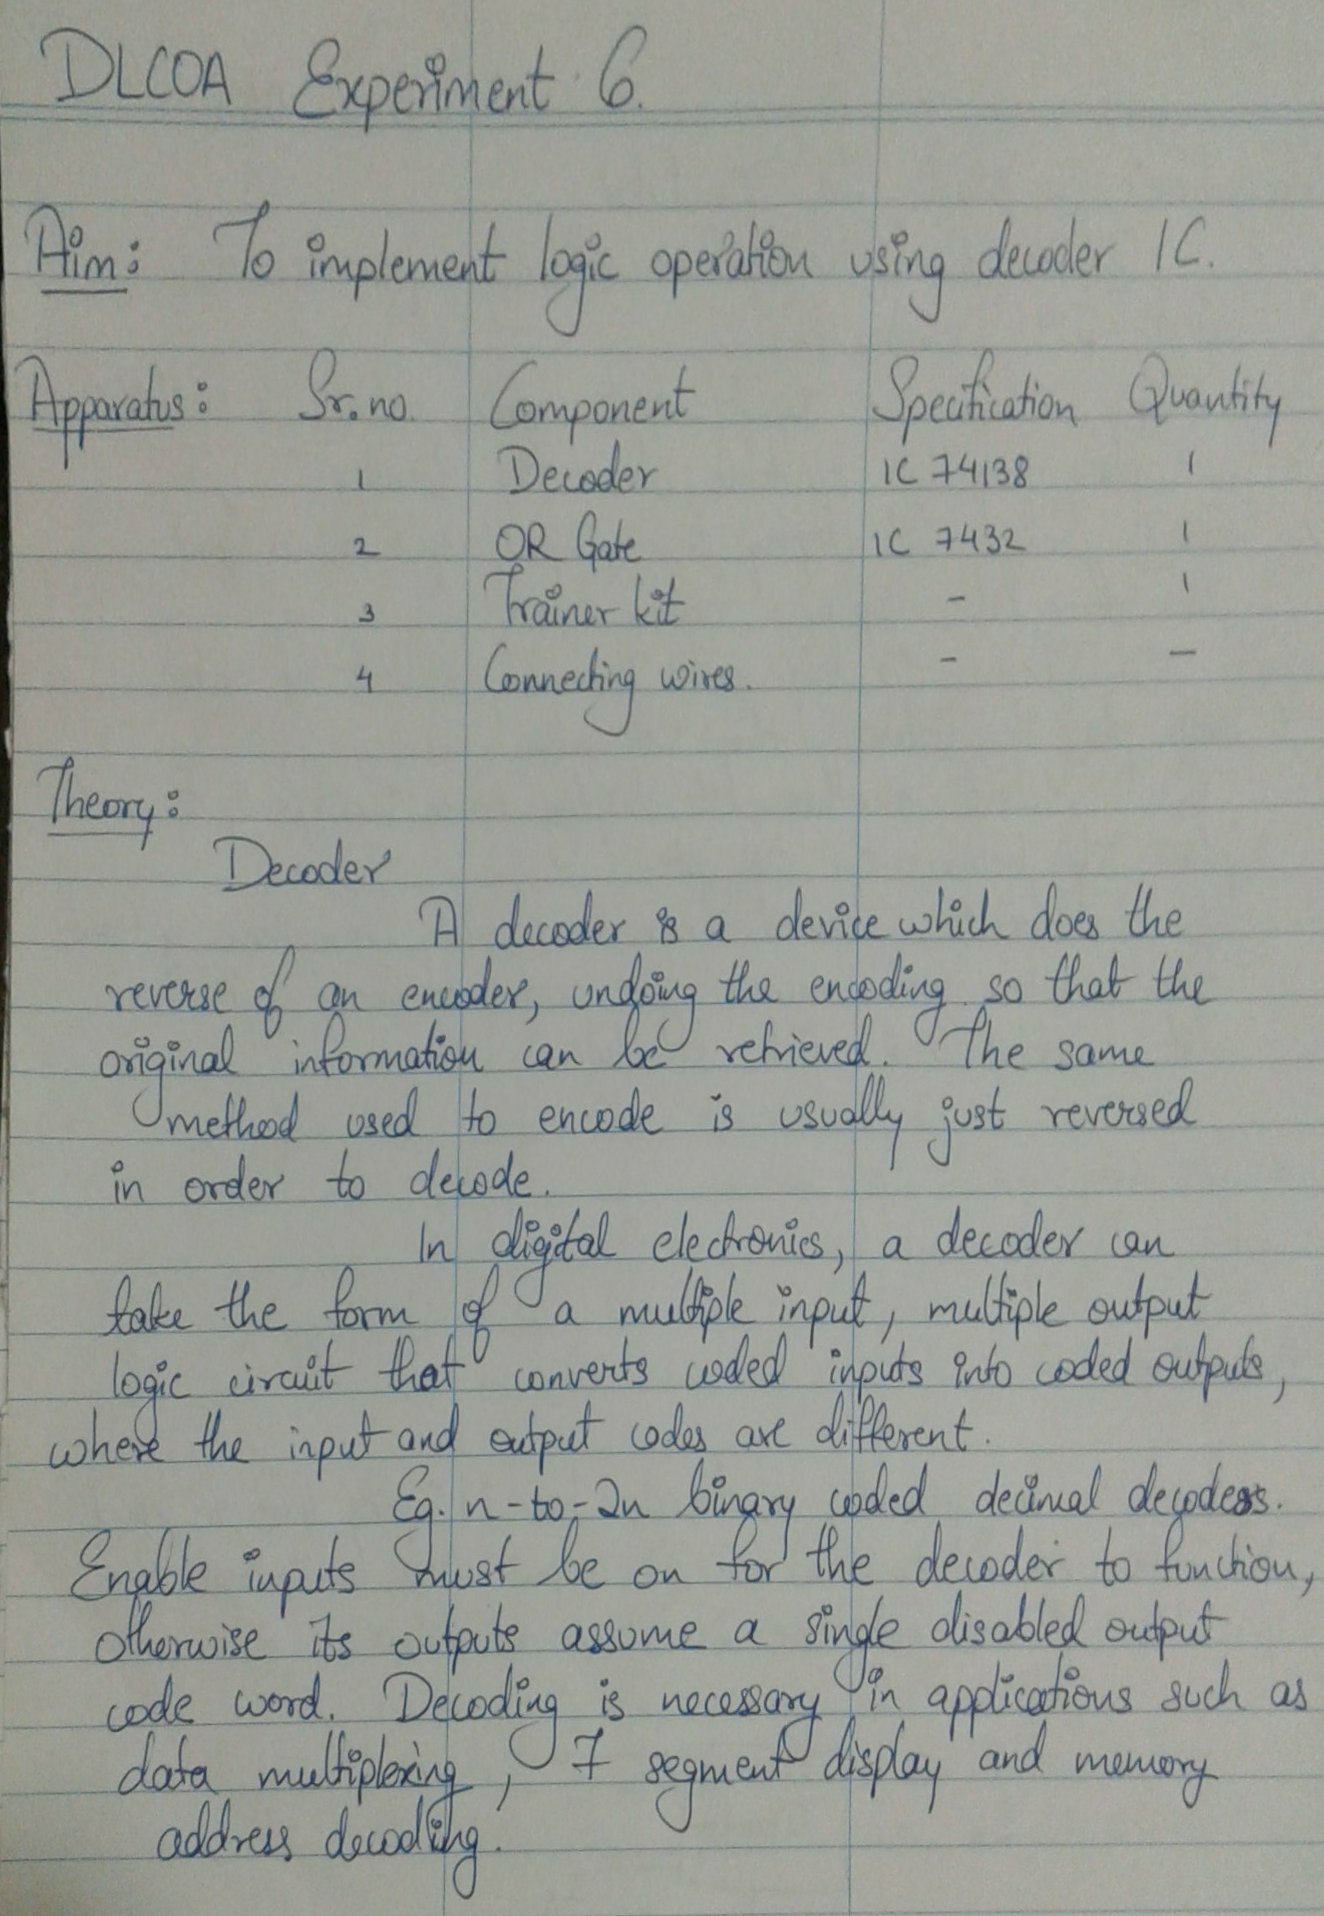 DLCOA Experiment 6.
Aim: To implement logic operation using decoder IC.
Apparatus: Sr. no. Component Specification Quantity
1 Decoder IC 74138 1
2 OR Gate IC 7432 1
3 Trainer kit - 1
4 Connecting wires. - -
Theory:
Decoder
A decoder is a device which does the
reverse of an encoder, undoing the encoding so that the
original information can be retrieved. The same
method used to encode is usually just reversed
in order to decode.
In digital electronics, a decoder can
take the form of a multiple input, multiple output
logic circuit that converts coded inputs into coded outputs,
where the input and output codes are different.
Eg. n-to-2n binary coded decimal decoders.
Enable inputs must be on for the decoder to function,
otherwise its outputs assume a single disabled output
code word. Decoding is necessary in applications such as
data multiplexing, 7 segment display and memory
address decoding.